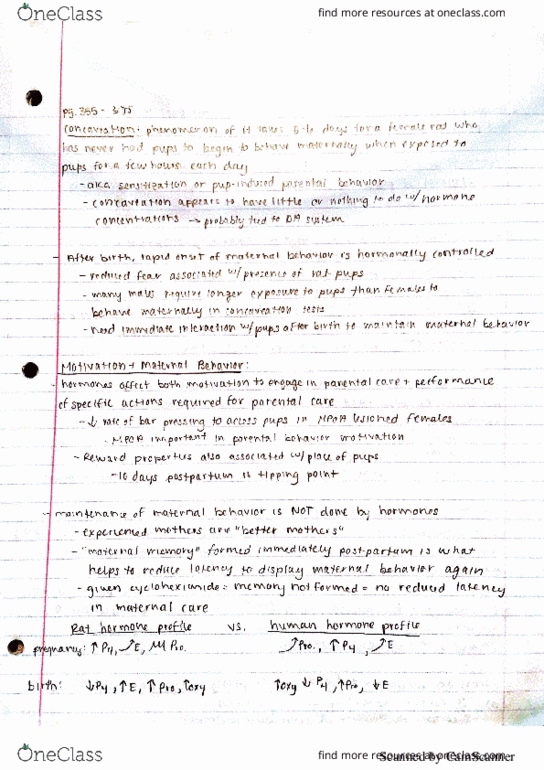 OneClass
find more resources at oneclass.com
pg. 355 - 375
Concaveation: phenomenon of it takes 5-6 days for a female rat who
has never had pups to begin to behave maternally when exposed to
pups for a few hours each day
- a.k.a. sensitization or pup-induced parental behavior
- concaveation appears to have little or nothing to do w/ hormone
concentrations → probably tied to DA system
- After birth, rapid onset of maternal behavior is hormonally controlled
- reduced fear associated w/ presence of rat pups
- many males require longer exposure to pups than females to
behave maternally in concaveation tests
- need immediate interaction w/ pups after birth to maintain maternal behavior
Motivation + Maternal Behavior:
- hormones affect both motivation to engage in parental care + performance
of specific actions required for parental care
- ↓ rate of bar pressing to access pups in MPOA lesioned females
. MPOA important in parental behavior motivation
- Reward properties also associated w/ place of pups
- 10 days postpartum is tipping point
- maintenance of maternal behavior is NOT done by hormones
- experienced mothers are "better mothers"
- "maternal memory" formed immediately post-partum is what
helps to reduce latency to display maternal behavior again
- given cyclohexiamide = memory not formed = no reduced latency
in maternal care
Rat hormone profile vs. human hormone profile
pregnancy: ↑ P4, ↗E, Pro. ↗Pro., ↑ P4, ↗E
birth: ↓P4, ↑E, ↑Pro, ↑oxy ↑oxy ↓P4, ↑Pro, ↓E
OneClass
find more resources at oneclass.com
Scanned by CamScanner